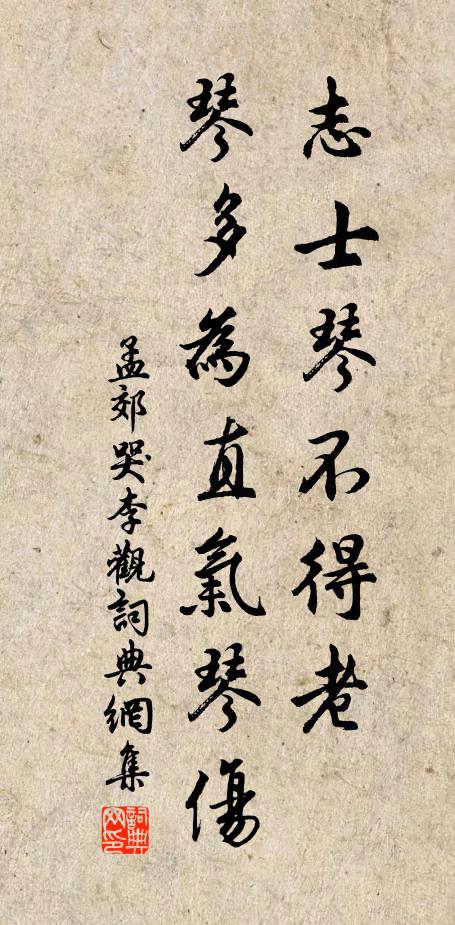 志士琴不得老
琴多為直氣琴傷
孟郊哭李觀詞典網集
詞典網印